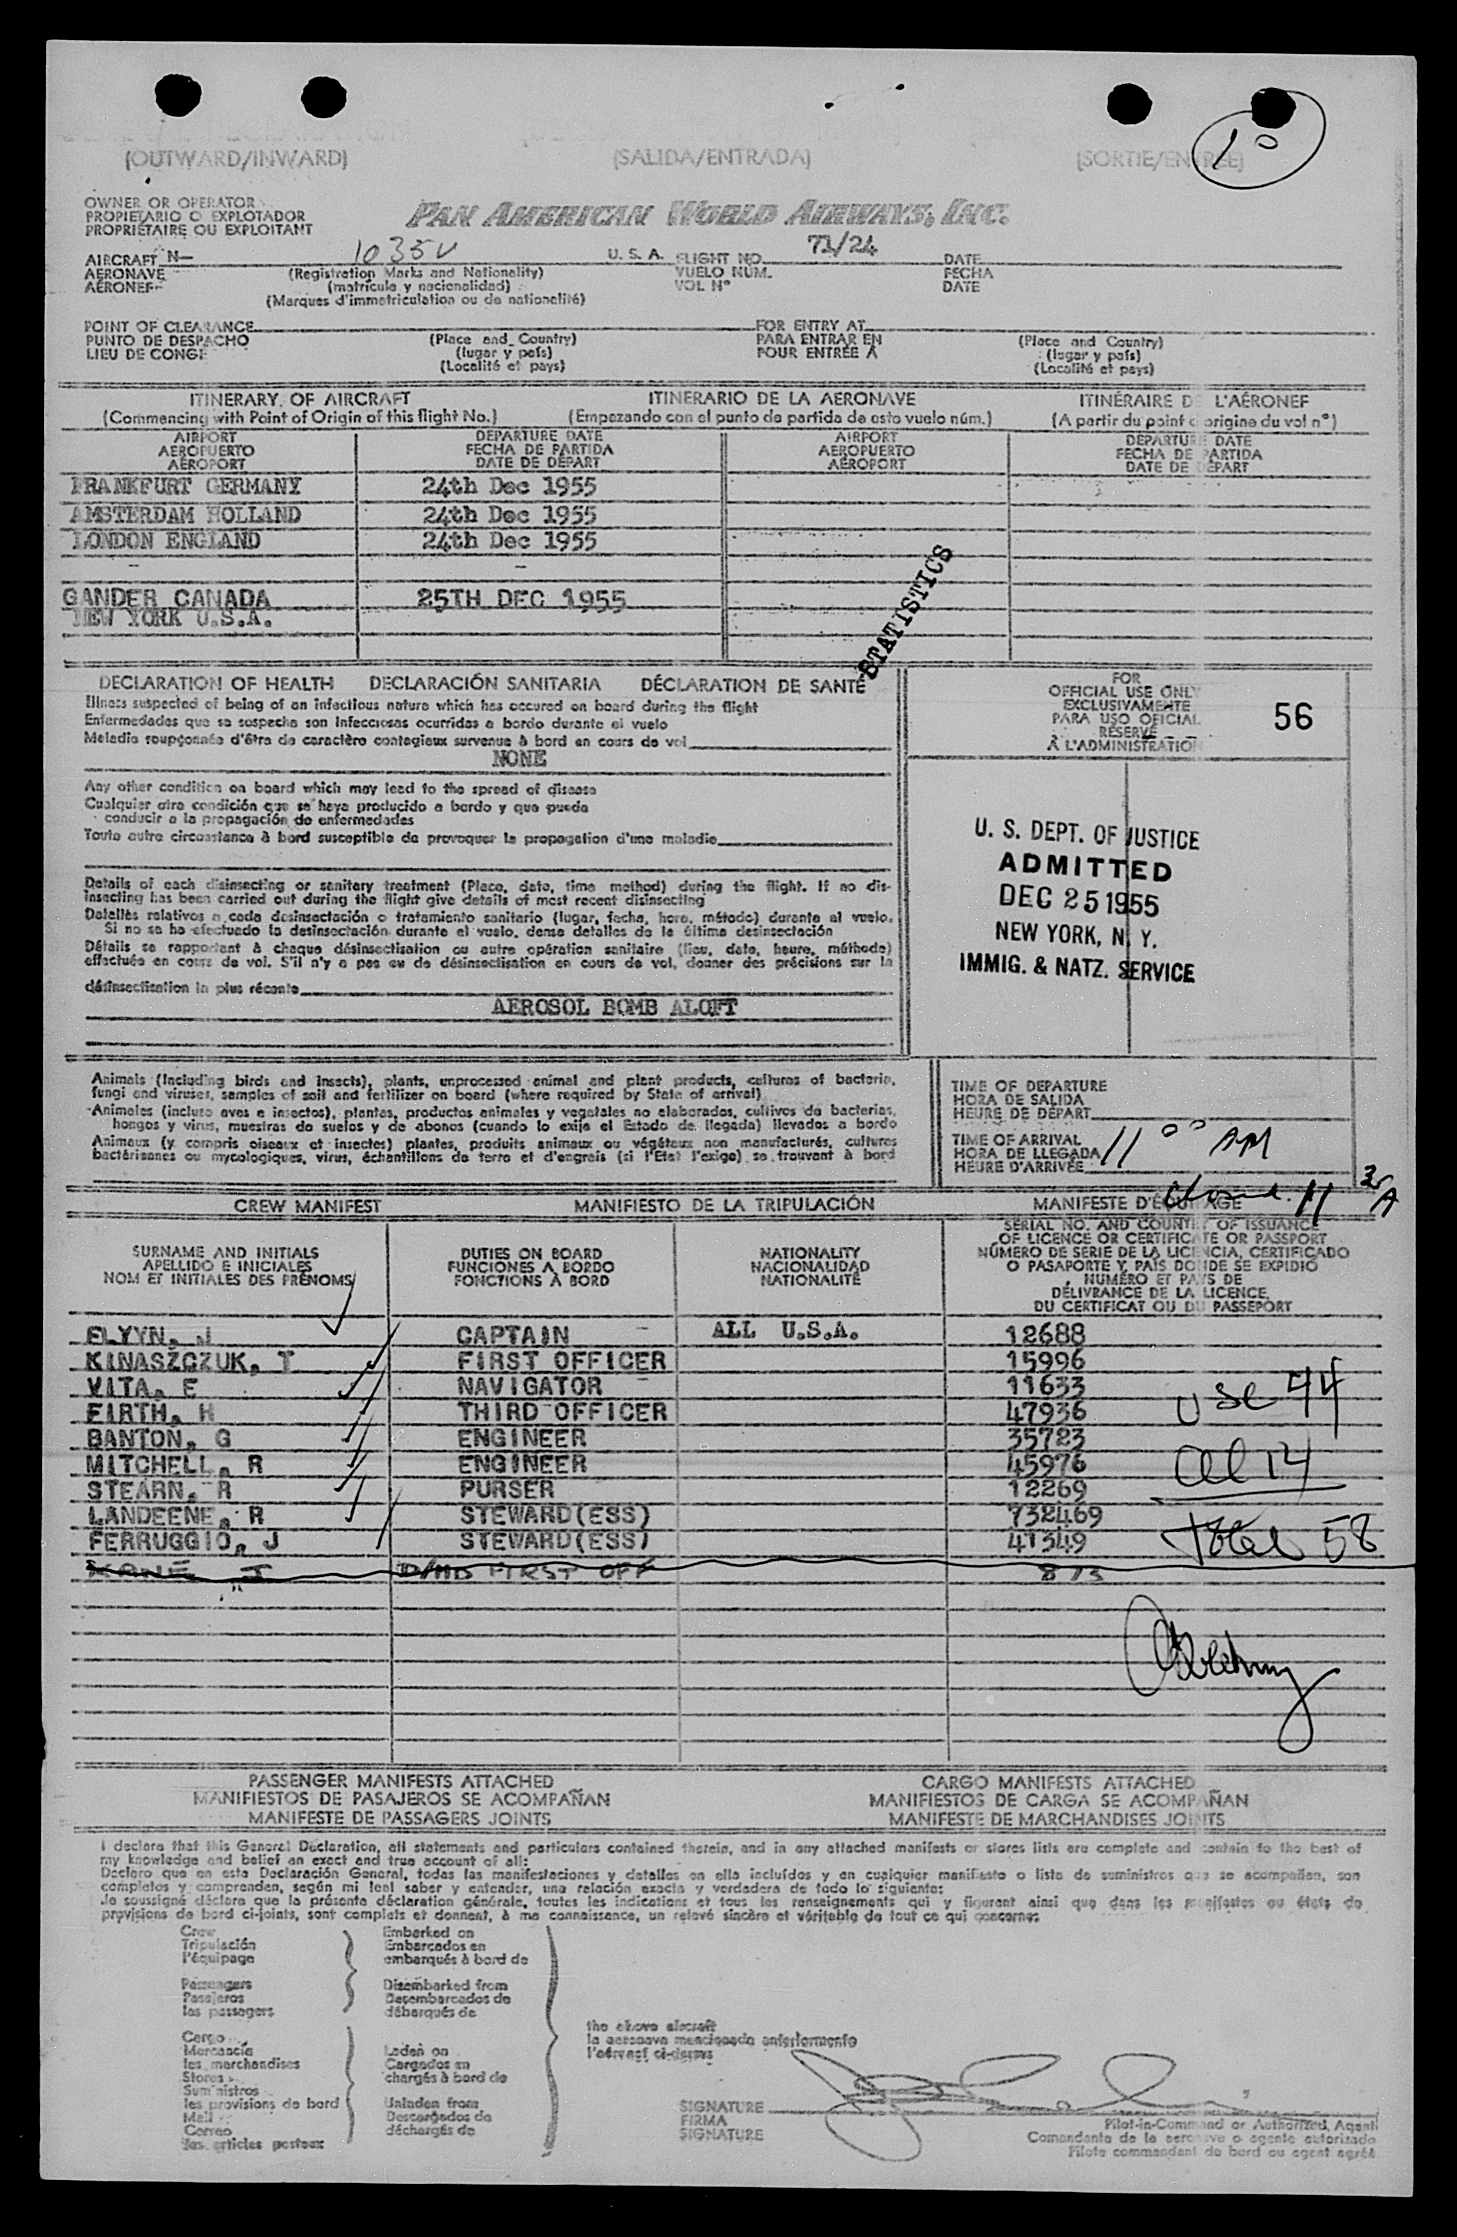 10
(OUTWARD/INWARD) (SALIDA/ENTRADA) (SORTIE/ENTREE)
OWNER OR OPERATOR
PROPIETARIO O EXPLOTADOR
PROPRIÉTAIRE OU EXPLOITANT
PAN AMERICAN WORLD AIRWAYS, INC.
AIRCRAFT N— 1035V U. S. A. FLIGHT NO. 71/24 DATE
AERONAVE (Registration Marks and Nationality) VUELO NÚM. FECHA
AÉRONEF (matrícula y nacionalidad) VOL Nº DATE
(Marques d'immatriculation ou de nationalité)
POINT OF CLEARANCE FOR ENTRY AT
PUNTO DE DESPACHO (Place and Country) PARA ENTRAR EN (Place and Country)
LIEU DE CONGÉ (lugar y país) POUR ENTRÉE À (lugar y país)
(Localité et pays) (Localité et pays)
ITINERARY OF AIRCRAFT ITINERARIO DE LA AERONAVE ITINÉRAIRE DE L'AÉRONEF
(Commencing with Point of Origin of this flight No.) (Empezando con el punto de partida de este vuelo núm.) (A partir du point d'origine du vol nº)
AIRPORT DEPARTURE DATE AIRPORT DEPARTURE DATE
AEROPUERTO FECHA DE PARTIDA AEROPUERTO FECHA DE PARTIDA
AÉROPORT DATE DE DÉPART AÉROPORT DATE DE DÉPART
FRANKFURT GERMANY 24th Dec 1955
AMSTERDAM HOLLAND 24th Dec 1955
LONDON ENGLAND 24th Dec 1955
GANDER CANADA 25TH DEC 1955
NEW YORK U.S.A.
STATISTICS
DECLARATION OF HEALTH DECLARACIÓN SANITARIA DÉCLARATION DE SANTÉ
Illness suspected of being of an infectious nature which has occured on board during the flight
Enfermedades que se sospecha son infecciosas ocurridas a bordo durante el vuelo
Maladie soupçonnée d'être de caractère contagieux survenue à bord en cours de vol
NONE
FOR
OFFICIAL USE ONLY
EXCLUSIVAMENTE
PARA USO OFICIAL
RÉSERVÉ
À L'ADMINISTRATION
56
Any other condition on board which may lead to the spread of disease
Cualquier otra condición que se haya producido a bordo y que pueda
conducir a la propagación de enfermedades
Toute autre circonstance à bord susceptible de provoquer la propagation d'une maladie
U. S. DEPT. OF JUSTICE
ADMITTED
DEC 25 1955
NEW YORK, N. Y.
IMMIG. & NATZ. SERVICE
Details of each disinsecting or sanitary treatment (Place, date, time method) during the flight. If no dis-
insecting has been carried out during the flight give details of most recent disinsecting
Detalles relativos a cada desinsectación o tratamiento sanitario (lugar, fecha, hora, método) durante el vuelo.
Si no se ha efectuado la desinsectación durante el vuelo, dense detalles de la última desinsectación
Détails se rapportant à chaque désinsectisation ou autre opération sanitaire (lieu, date, heure, méthode)
effectuée en cours de vol. S'il n'y a pas eu de désinsectisation en cours de vol, donner des précisions sur la
désinsectisation la plus récente
AEROSOL BOMB ALOFT
Animals (Including birds and insects), plants, unprocessed animal and plant products, cultures of bacteria,
fungi and viruses, samples of soil and fertilizer on board (where required by State of arrival)
Animales (incluso aves e insectos), plantas, productos animales y vegetales no elaborados, cultivos de bacterias,
hongos y virus, muestras de suelos y de abonos (cuando lo exija el Estado de llegada) llevados a bordo
Animaux (y compris oiseaux et insectes) plantes, produits animaux ou végétaux non manufacturés, cultures
bactériennes ou mycologiques, virus, échantillons de terre et d'engrais (si l'Etat l'exige) se trouvant à bord
TIME OF DEPARTURE
HORA DE SALIDA
HEURE DE DÉPART
TIME OF ARRIVAL
HORA DE LLEGADA 11 00 AM
HEURE D'ARRIVÉE
CREW MANIFEST MANIFIESTO DE LA TRIPULACIÓN MANIFESTE D'ÉQUIPAGE
SURNAME AND INITIALS DUTIES ON BOARD NATIONALITY
APELLIDO E INICIALES FUNCIONES A BORDO NACIONALIDAD
NOM ET INITIALES DES PRÉNOMS FONCTIONS À BORD NATIONALITÉ
SERIAL NO. AND COUNTRY OF ISSUANCE
OF LICENCE OR CERTIFICATE OR PASSPORT
NÚMERO DE SERIE DE LA LICENCIA, CERTIFICADO
O PASAPORTE Y PAIS DONDE SE EXPIDIÓ
NUMÉRO ET PAYS DE
DÉLIVRANCE DE LA LICENCE,
DU CERTIFICAT OU DU PASSEPORT
FLYYN, J CAPTAIN ALL U.S.A. 12688
KINASZCZUK, T FIRST OFFICER 15996
VITA, E NAVIGATOR 11633
FIRTH, H THIRD OFFICER 47936
BANTON, G ENGINEER 35723
MITCHELL, R ENGINEER 45976
STEARN, R PURSER 12269
LANDEENE, R STEWARD(ESS) 732469
FERRUGGIO, J STEWARD(ESS) 41349
KANE J D/HD FIRST OFF 873
USC 44
al 14
total 58
PASSENGER MANIFESTS ATTACHED CARGO MANIFESTS ATTACHED
MANIFIESTOS DE PASAJEROS SE ACOMPAÑAN MANIFIESTOS DE CARGA SE ACOMPAÑAN
MANIFESTE DE PASSAGERS JOINTS MANIFESTE DE MARCHANDISES JOINTS
I declare that this General Declaration, all statements and particulars contained therein, and in any attached manifests or stores lists are complete and contain to the best of
my knowledge and belief an exact and true account of all:
Declaro que en esta Declaración General, todas las manifestaciones y detalles en ella incluídos y en cualquier manifiesto o lista de suministros que se acompañan, son
completos y comprenden, según mi leal saber y entender, una relación exacta y verdadera de todo lo siguiente:
Je soussigné déclare que la présente déclaration générale, toutes les indications et tous les renseignements qui y figurent ainsi que dans les manifestes ou états de
provisions de bord ci-joints, sont complets et donnent, à ma connaissance, un relevé sincère et véritable de tout ce qui concerne:
Crew Embarked on
Tripulación Embarcados en
l'équipage embarqués à bord de
Passengers Disembarked from
Pasajeros Desembarcados de
les passagers débarqués de
the above aircraft
la aeronave mencionada anteriormente
l'aéronef ci-dessus
Cargo
Mercancía Laden on
les marchandises Cargados en
Stores chargés à bord de
Suministros
les provisions de bord Unladen from
Mail Descargados de
Correo déchargés de
les articles postaux
SIGNATURE
FIRMA
SIGNATURE
Pilot-in-Command or Authorized Agent
Comandante de la aeronave o agente autorizado
Pilote commandant de bord ou agent agréé